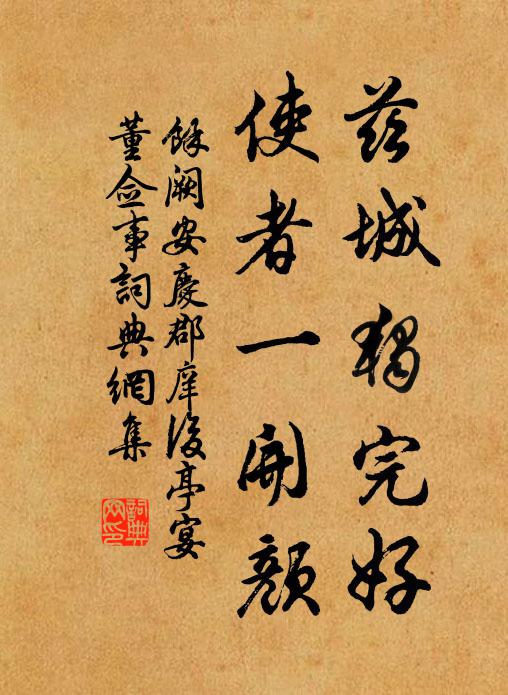 茲城獨完好
使者一開顏
餘闕安慶郡庠後亭宴
董僉事詞典網集
詞典网印